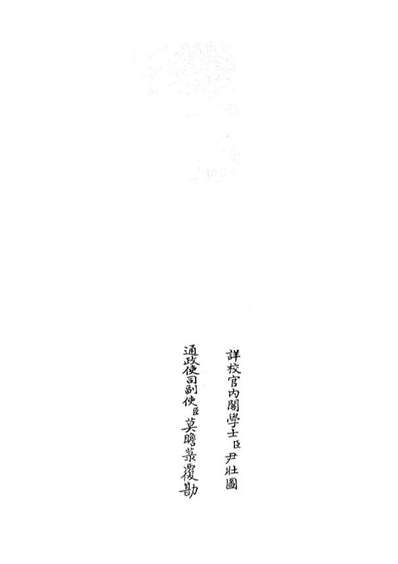 詳校官內閣學士臣尹壯圖
通政使司副使臣莫瞻菉覆勘